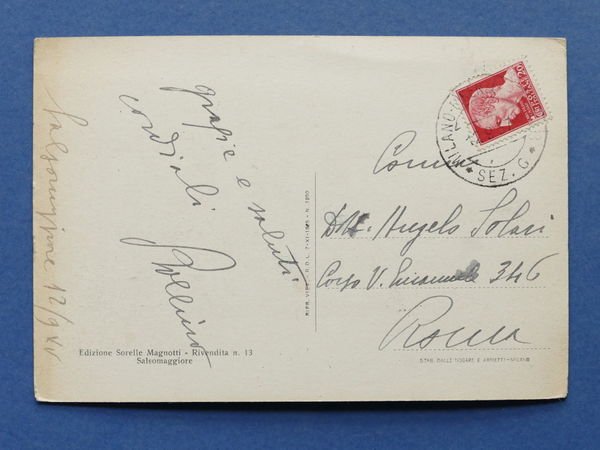 Salsomaggiore 12/9 XV
grazie e saluti
cordiali
Edizione Sorelle Magnotti - Rivendita n. 13
Salsomaggiore
RIPR. VIET. R.D.L. 7-XI-1925 - N. 1950
MILANO
SEZ. G
Dott. Angelo Solari
Corso V. Emanuele 346
Roma
STAB. DALLE NOGARE E ARMETTI-MILANO